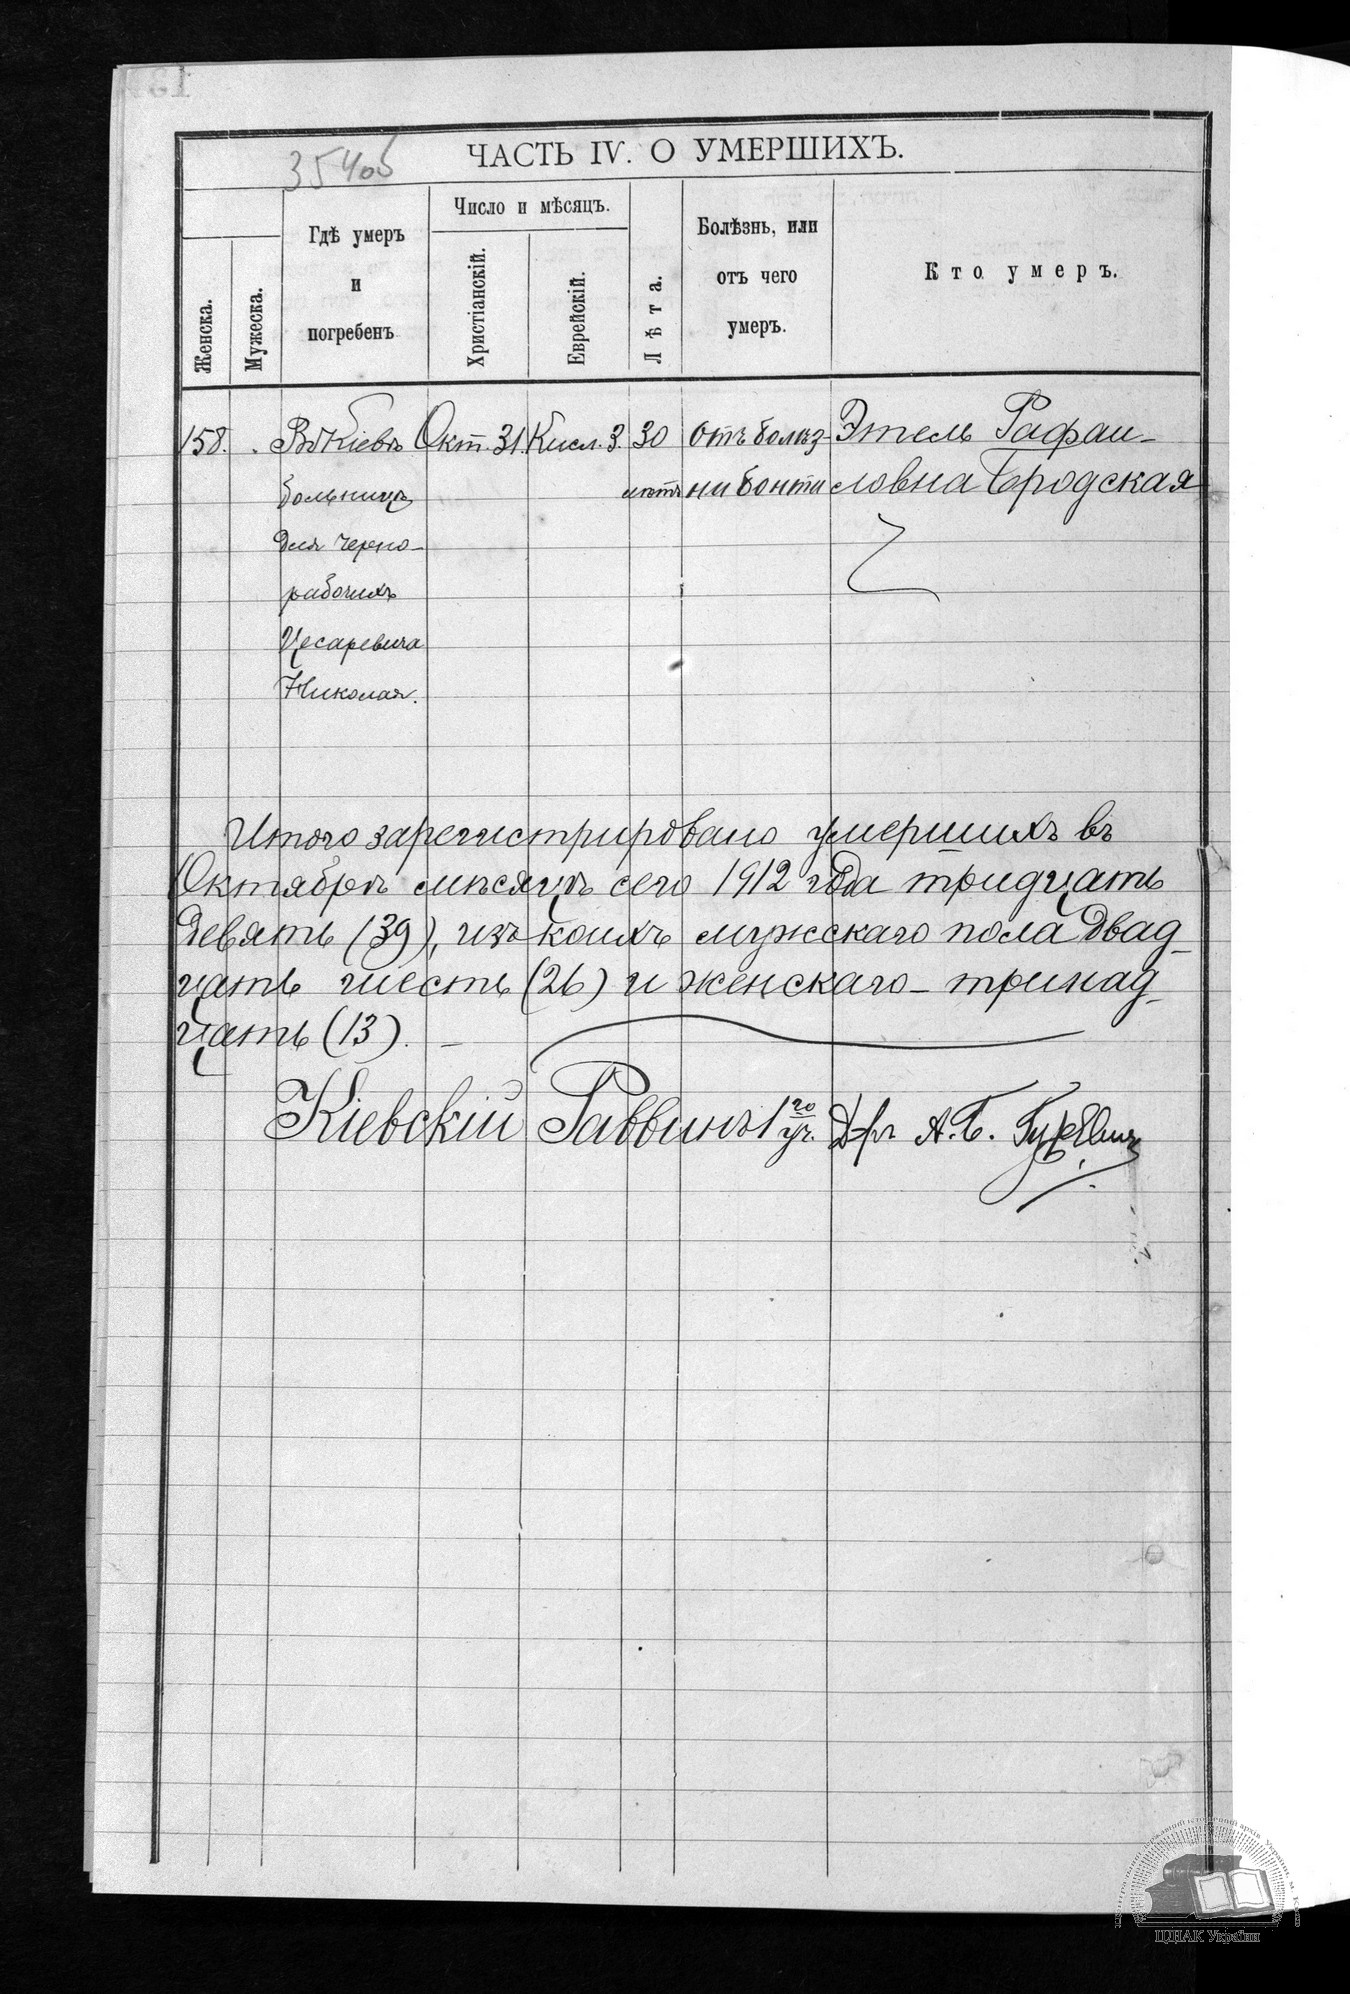 354об
ЧАСТЬ IV. О УМЕРШИХЪ.
Женска.
Мужеска.
Гдѣ умеръ
и
погребенъ
Число и мѣсяцъ.
Христіанскій.
Еврейскій.
Лѣта.
Болѣзнь, или
отъ чего
умеръ.
Кто умеръ.
158. . Въ Кіевѣ Окт. 31. Кисл. 3. 30 отъ болѣз- Этель Рафаи-
больницѣ лѣтъ ни Бонти ловна Бродская
для черно-
рабочихъ
Цесаревича
Николая.
Итого зарегистрировано умершихъ въ
Октябрѣ мѣсяцѣ сего 1912 года тридцать
девять (39), изъ коихъ мужскаго пола двад-
цать шесть (26) и женскаго - тринад-
цать (13). -
Кіевскій Раввинъ 1го уч. Д-ръ А. Б. Гуревичъ
ЦДІАК України